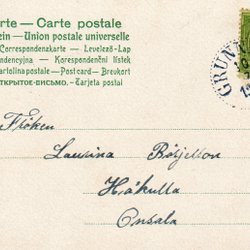 rte — Carte postale
zin — Union postale universelle
Correspondenzkarte — Levelező-Lap
ndencyjna — Korespondenční lístek
artolina postale — Post card — Breukort
ТКРЫТОЕ-ПИСЬМО. — Tarjeta postal
GRUN
Fröken
Laurina Börjesson
Håkulla
Onsala